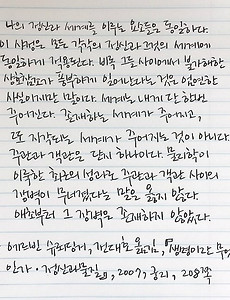 나의 정신과 세계를 이루는 요소들은 동일하다.
이 사정은 모든 각각의 정신과 그것의 세계에
동일하게 적용된다. 비록 그들 사이에서 불가해한
상호참조가 풍부하게 일어난다는 것은 엄연한
사실이지만 말이다. 세계는 내게 단 한번
주어진다. 존재하는 세계가 주어지고,
또 지각되는 세계가 주어지는 것이 아니다.
주관과 객관은 단지 하나이다. 물리학이
이룩한 최근의 성과로 주관과 객관 사이의
장벽이 무너졌다는 말은 옳지 않다.
애초부터 그 장벽은 존재하지 않았다.
에르빈 슈뢰딩거, 전대호 옮김, 『생명이란 무엇
인가·정신과 물질』, 2007, 궁리, 208쪽